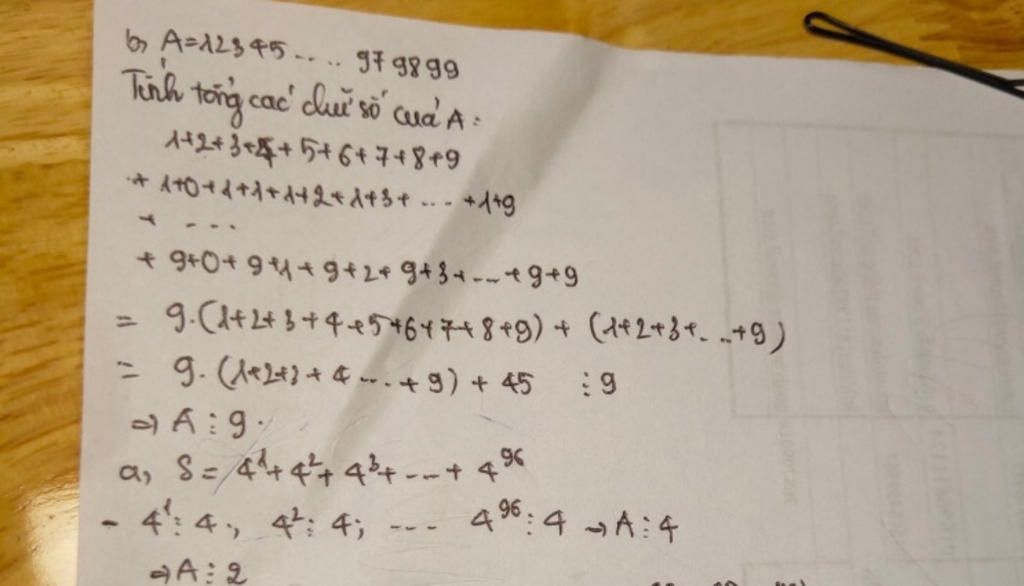 b, A=12345..... 979899
Tính tổng các chữ số của A:
1+2+3+4+5+6+7+8+9
+ 1+0+1+1+1+2+1+3+ ... +1+9
+ ...
+ 9+0+9+1+9+2+9+3+...+9+9
= 9.(1+2+3+4+5+6+7+8+9) + (1+2+3+...+9)
= 9.(1+2+3+4....+9) + 45 ⋮ 9
⇒ A ⋮ 9.
a, S = 4¹+4²+4³+...+4⁹⁶
- 4¹ ⋮ 4; 4² ⋮ 4; ... 4⁹⁶ ⋮ 4 ⇒ A ⋮ 4
⇒ A ⋮ 2